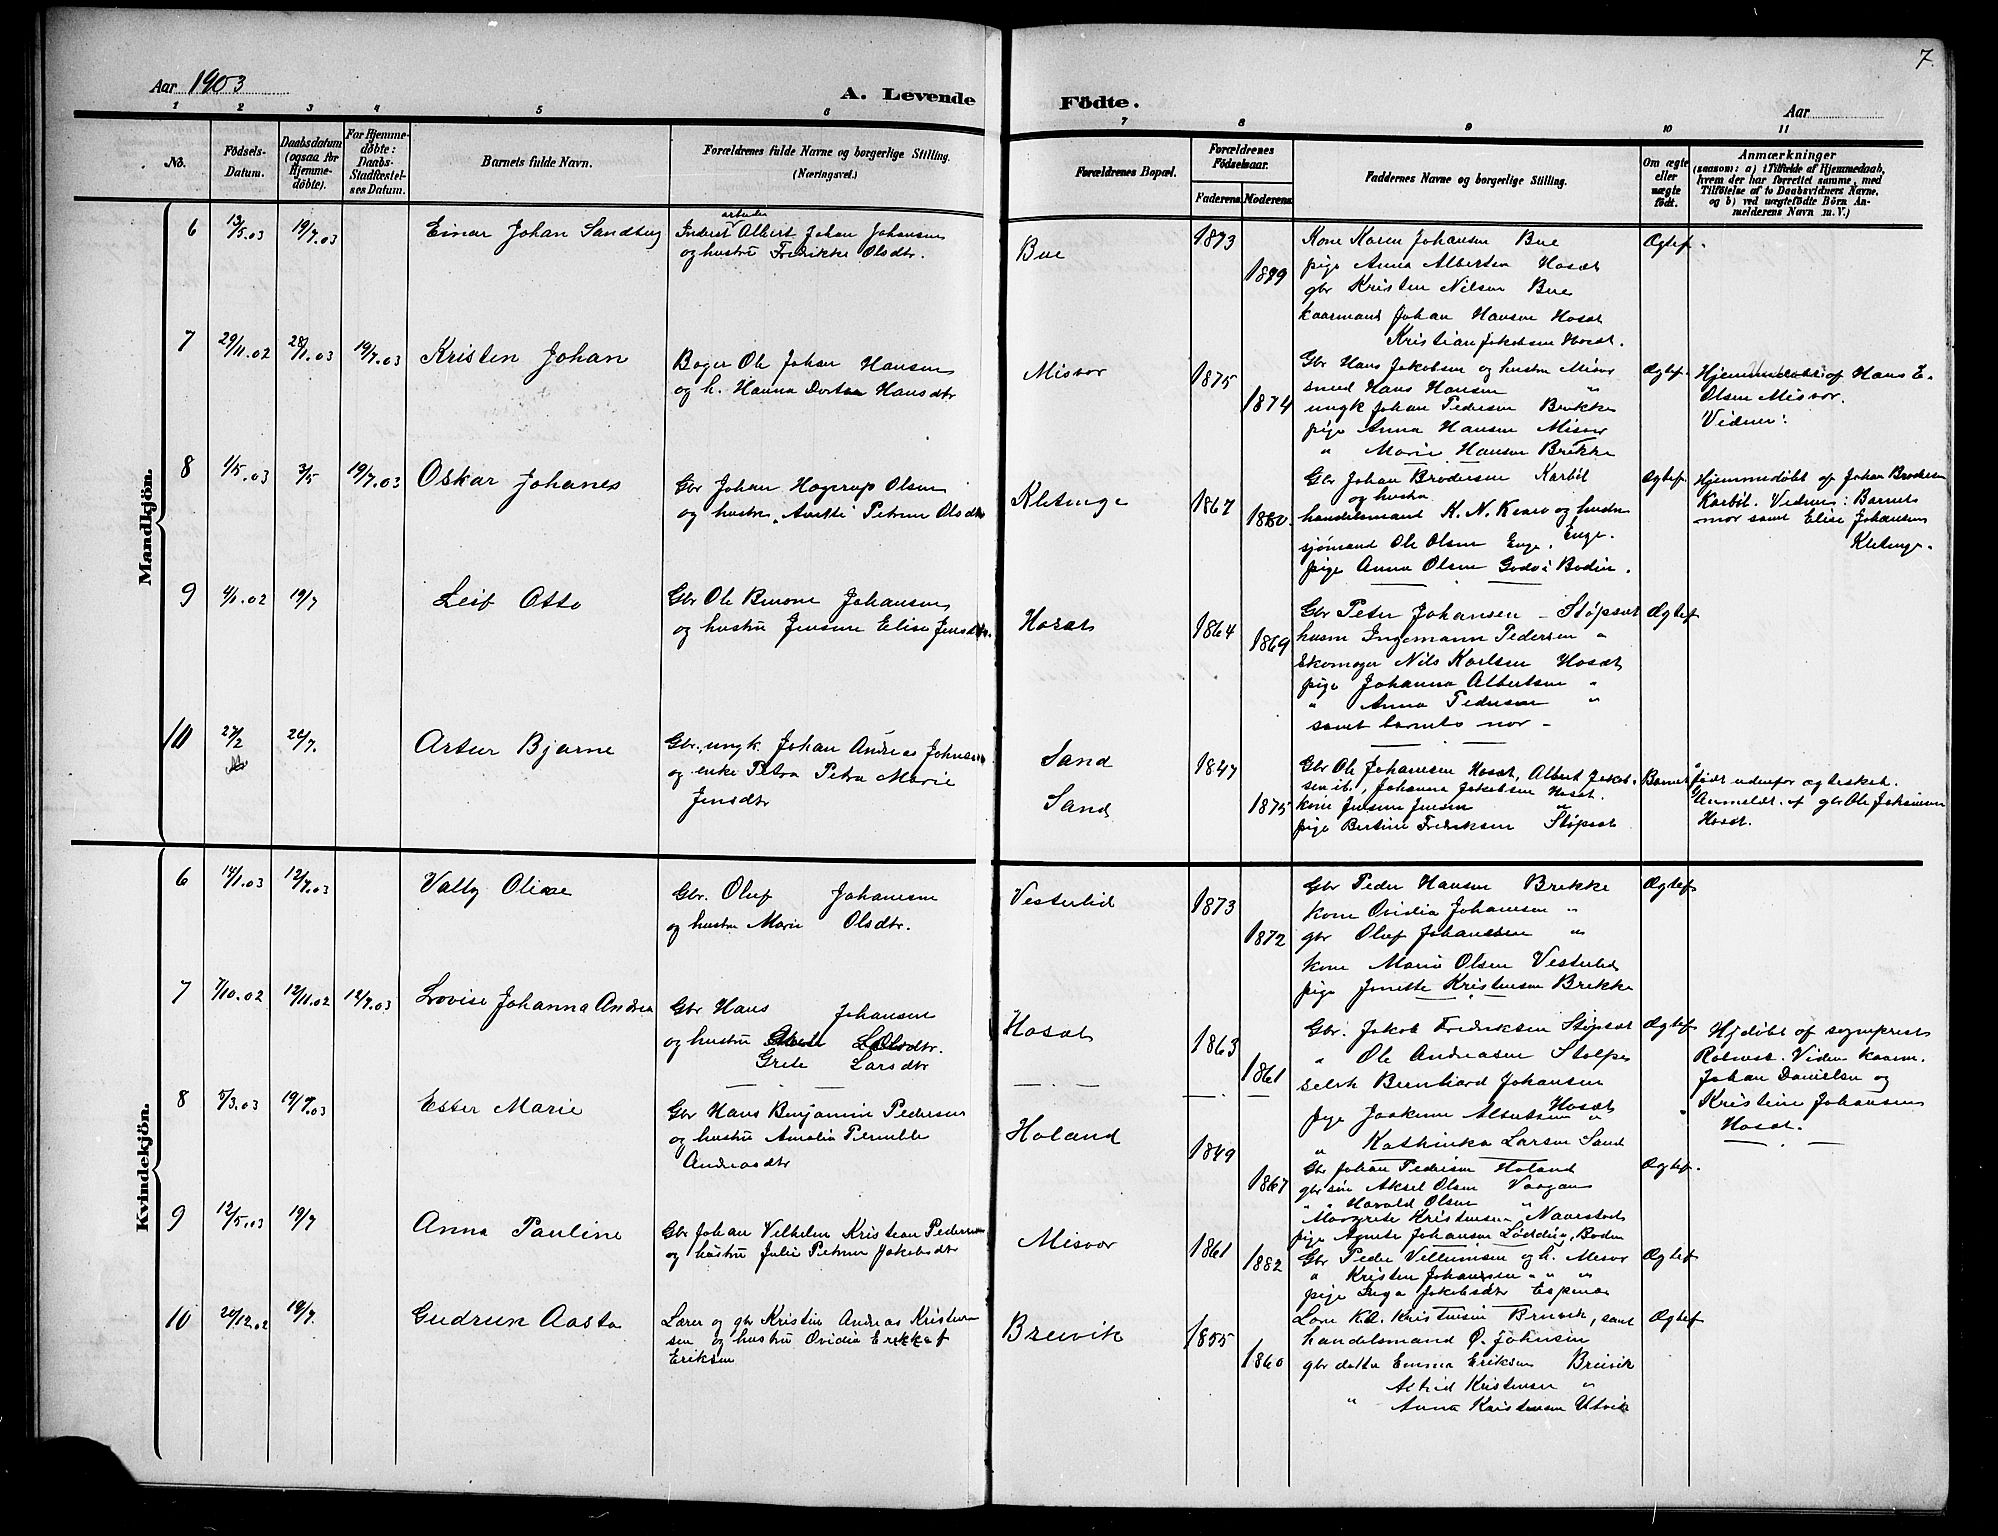 7.
Aar 1903
A. Levende Födte.
Aar
1 2 3 4 5 6 7 8 9 10 11
No. Födsels-Datum. Daabsdatum (ogsaa for Hjemmedöbte). For Hjemmedöbte: Daabs-Stadfæstelses Datum. Barnets fulde Navn. Forældrenes fulde Navne og borgerlige Stilling. (Næringsvei.) Forældrenes Bopæl. Forældrenes Födselsaar. Faderens Moderens Faddernes Navne og borgerlige Stilling. Om ægte eller uægte födt. Anmærkninger
(saasom: a) i Tilfælde af Hjemmedaab, hvem der har forrettet samme, med Tilföielse af to Daabsvidners Navne, og b) ved uægtefödte Börn Anmelderens Navn m. V.)
Mandkjön.
6 13/5.03 19/7.03 Einar Johan Sandberg
arbeider
Inderst Albert Johan Johansen
og hustru Fredrikke Olsdtr.
Bue 1873
Kone Karen Johansen Bue
pige Anna Albertsen Hosæt
gbr Kristen Nilsen Bue
kaarmand Johan Hansen Hosæt
Kristian Jakobsen Hosæt.
Ægtef.
7 29/11.02 28/1.03 19/7.03 Kristen Johan
Bager Ole Johan Hansen
og h. Hanna Dortea Hansdtr
Misvær 1875 1874
Gbr Hans Jakobsen og hustru Misvær
smed Hans Hansen "
ungk Johan Pedersen Brekke
pige Anna Hansen Misvær
" Marie Hansen Brekke
Ægtef.
Hjemmedøbt af Hans E.
Olsen Misvær.
Vidner:
8 1/5.03 3/5 19/7.03 Oskar Johanes
Gbr Johan Hagerup Olsen
og hustru Petrine Olsdtr
Kletinge 1867 1880
Gbr Johan Brodersen Karbøl
og hustru
handelsmand K. N. og hustru
sjømand Ole Olsen Enge. Enge.
pige Anna Olsen Godø i Bodin.
Ægtef.
Hjemmedøbt af Johan Brodersen
Karbøl. Vidner: Barnets
mor samt Elise Johansen
Kletinge.
9 19/7 Leif Otto
Gbr Ole Johansen
og hustru Jensine Elise Jensdtr.
Hosæt 1864 1869
Gbr Peter Johansen - Støpset
husm Ingemann Pedersen "
Skomager Nils Karlsen Hosæt
pige Johanna Albertsen "
" Anna Pedersen "
samt barnets mor -
Ægtef
10 27/2 26/7. Artur Bjarne
Gbr., ungk. Johan Andreas Johnsen
og enke Petra Petra Marie
Jensdtr
Sand
Sand
1847 1875
Gbr Ole Johansen Hosæt, Albert Jakobsen
ib., Johanna Jakobsen Hosæt.
kone Jensine Jensen "
pige Bertine Fredriksen Støpset
Barnet født udenfor ægtesket.
Anmeldt af gbr Ole Johansen
Hosæt.
Kvindekjön.
6 14/1.03 12/7.03 Valby Oline
Gbr. Oluf Johansen
og hustru Marie Olsdtr.
Vesterlid 1873 1872
Gbr Peder Hansen Brekke
kone Ovidia Johansen "
gbr Oluf Johansen "
kone Marie Olsen Vesterlid
pige Jenette Kristensen Brekke
Ægtef
7 7/10.02 12/11.02 12/7.03 Lovise Johanna Andrea
Gbr Hans Johansen
og hustru
Grete Larsdtr
Hosæt 1863 1861
Gbr. Jakob Fredriksen Støpset
" Ole Andreasen Stolpe
selvh Bernhard Johansen
Hosæt
pige Joakime Albertsen "
" Kathinka Larsen Sand
Ægtef
Hjdøbt af sognepræst
Vidner kaarm.
Johan Danielsen og
Kristine Johansen
Hosæt.
8 5/3.03 19/7.03 Ester Marie
Gbr Hans Benjamin Pedersen
og hustru Amalia Pernille
Andreasdtr
Holand 1849 1867
Gbr Johan Pedersen Holand
gbr søn Aksel Olsen Vaagan
" " Harald Olsen "
Margrete Kristensen Navestad
pige Agnete Johansen Løddin, Bodin
Ægtef.
9 12/5.03 19/7 Anna Pauline
Gbr Johan Vilhelm Kristian Pedersen
og hustru Julie Petrine Jakobsdtr
Misvær 1861 1882
Gbr Peder Vellumsen og h. Mesvær
" Kristen Johansen " " "
pige Inga Jakobsdtr Espenæs
Ægtef
10 20/12.02 19/7 Gudrun Aasta
Lærer og gbr Kristen Andreas Kristensen
og hustru Ovidia
Eriksen
Breivik 1855 1860
K.A. Kristensen Breivik, samt
handelsmand Ø. Johnsen
gbr datter Emma Eriksen Breivik
Astrid Kristensen "
" Anna Kristensen Utvik
Ægtef